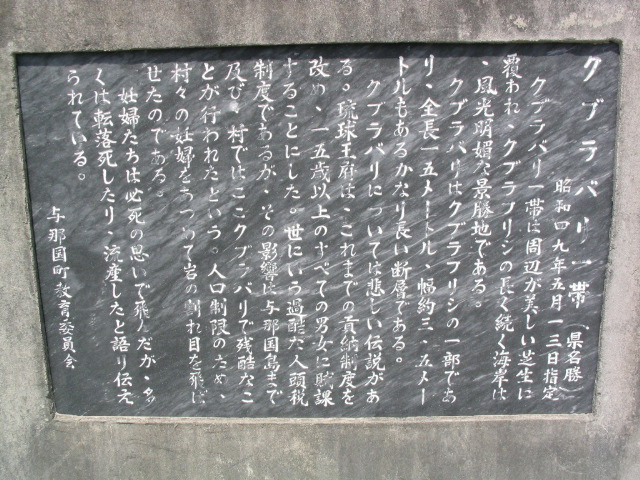 クブラバリ一帯（県名勝）
昭和四九年五月一三日指定
クブラバリ一帯は周辺が美しい芝生に
覆われ、クブラフリシの長く続く海岸は
、風光明媚な景勝地である。
クブラバリはクブラフリシの一部であ
り、全長一五メートル、幅約三・五メー
トルもあるかなり長い断層である。
クブラバリについては悲しい伝説があ
る。琉球王府は、これまでの貢納制度を
改め、一五歳以上のすべての男女に賦課
することにした。世にいう過酷な人頭税
制度であるが、その影響は与那国島まで
及び、村ではここクブラバリで残酷なこ
とが行われたという。人口制限のため、
村々の妊婦をあつめて岩の割れ目を飛ば
せたのである。
妊婦たちは必死の思いで飛んだが、多
くは転落死したり、流産したと語り伝え
られている。
与那国町教育委員会